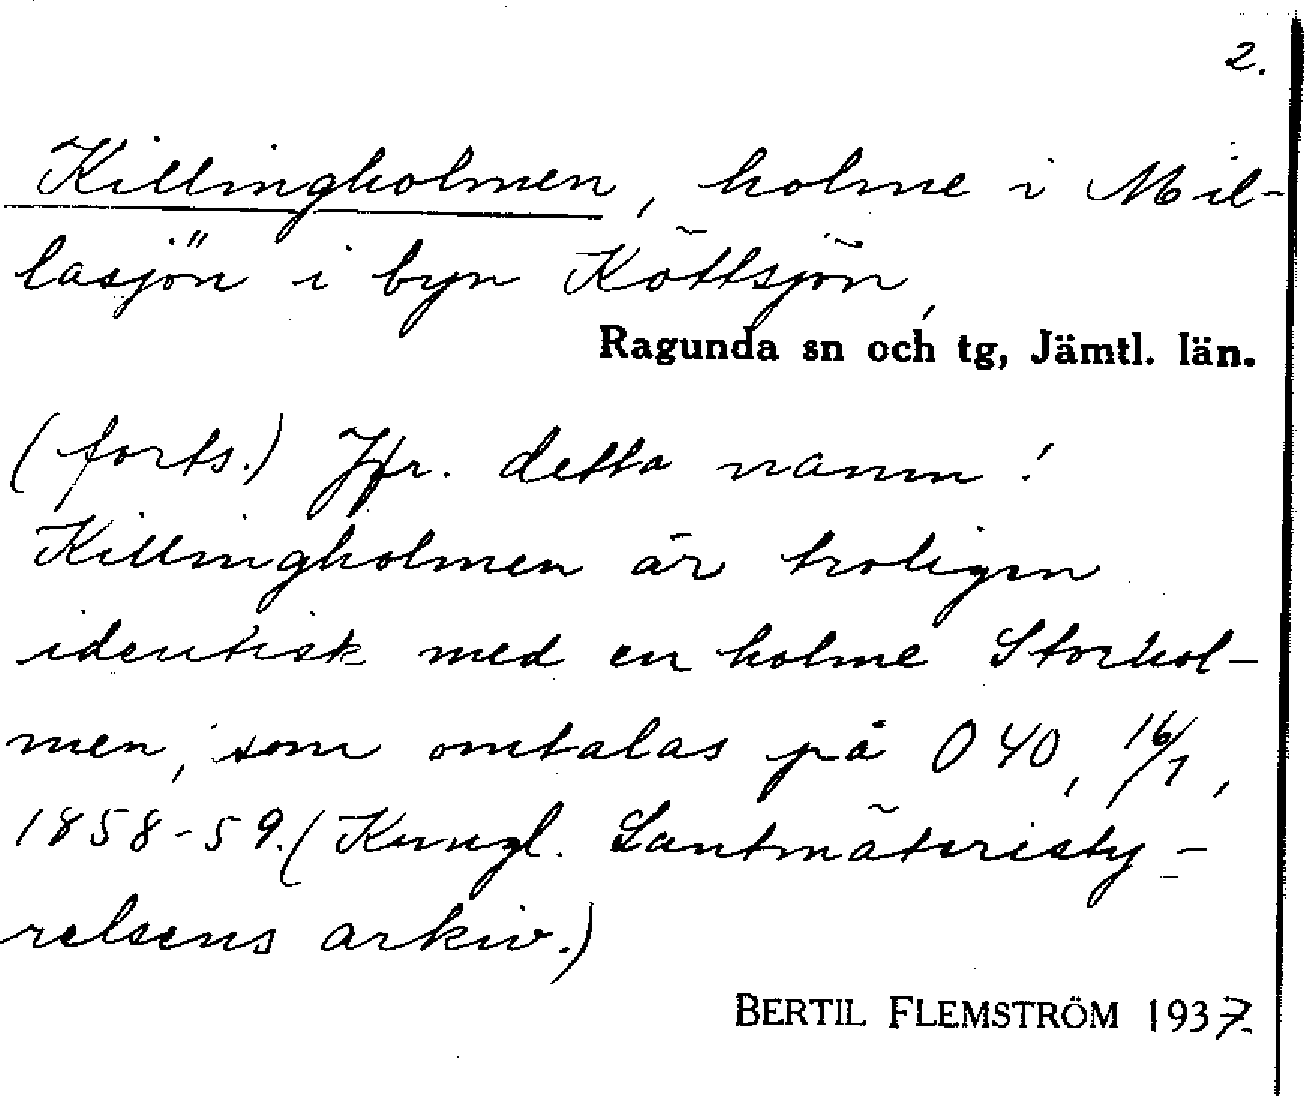 2.
Killingholmen, holme i Mil-
lasjön i byn Köttsjön,
Ragunda sn och tg, Jämtl. län.
(forts.) Jfr. detta namn!
Killingholmen är troligen
identisk med en holme Storhol-
men, som omtalas på O 40, 16/7,
1858-59. (Kungl. Lantmäteristy-
relsens arkiv.)
BERTIL FLEMSTRÖM 1937.